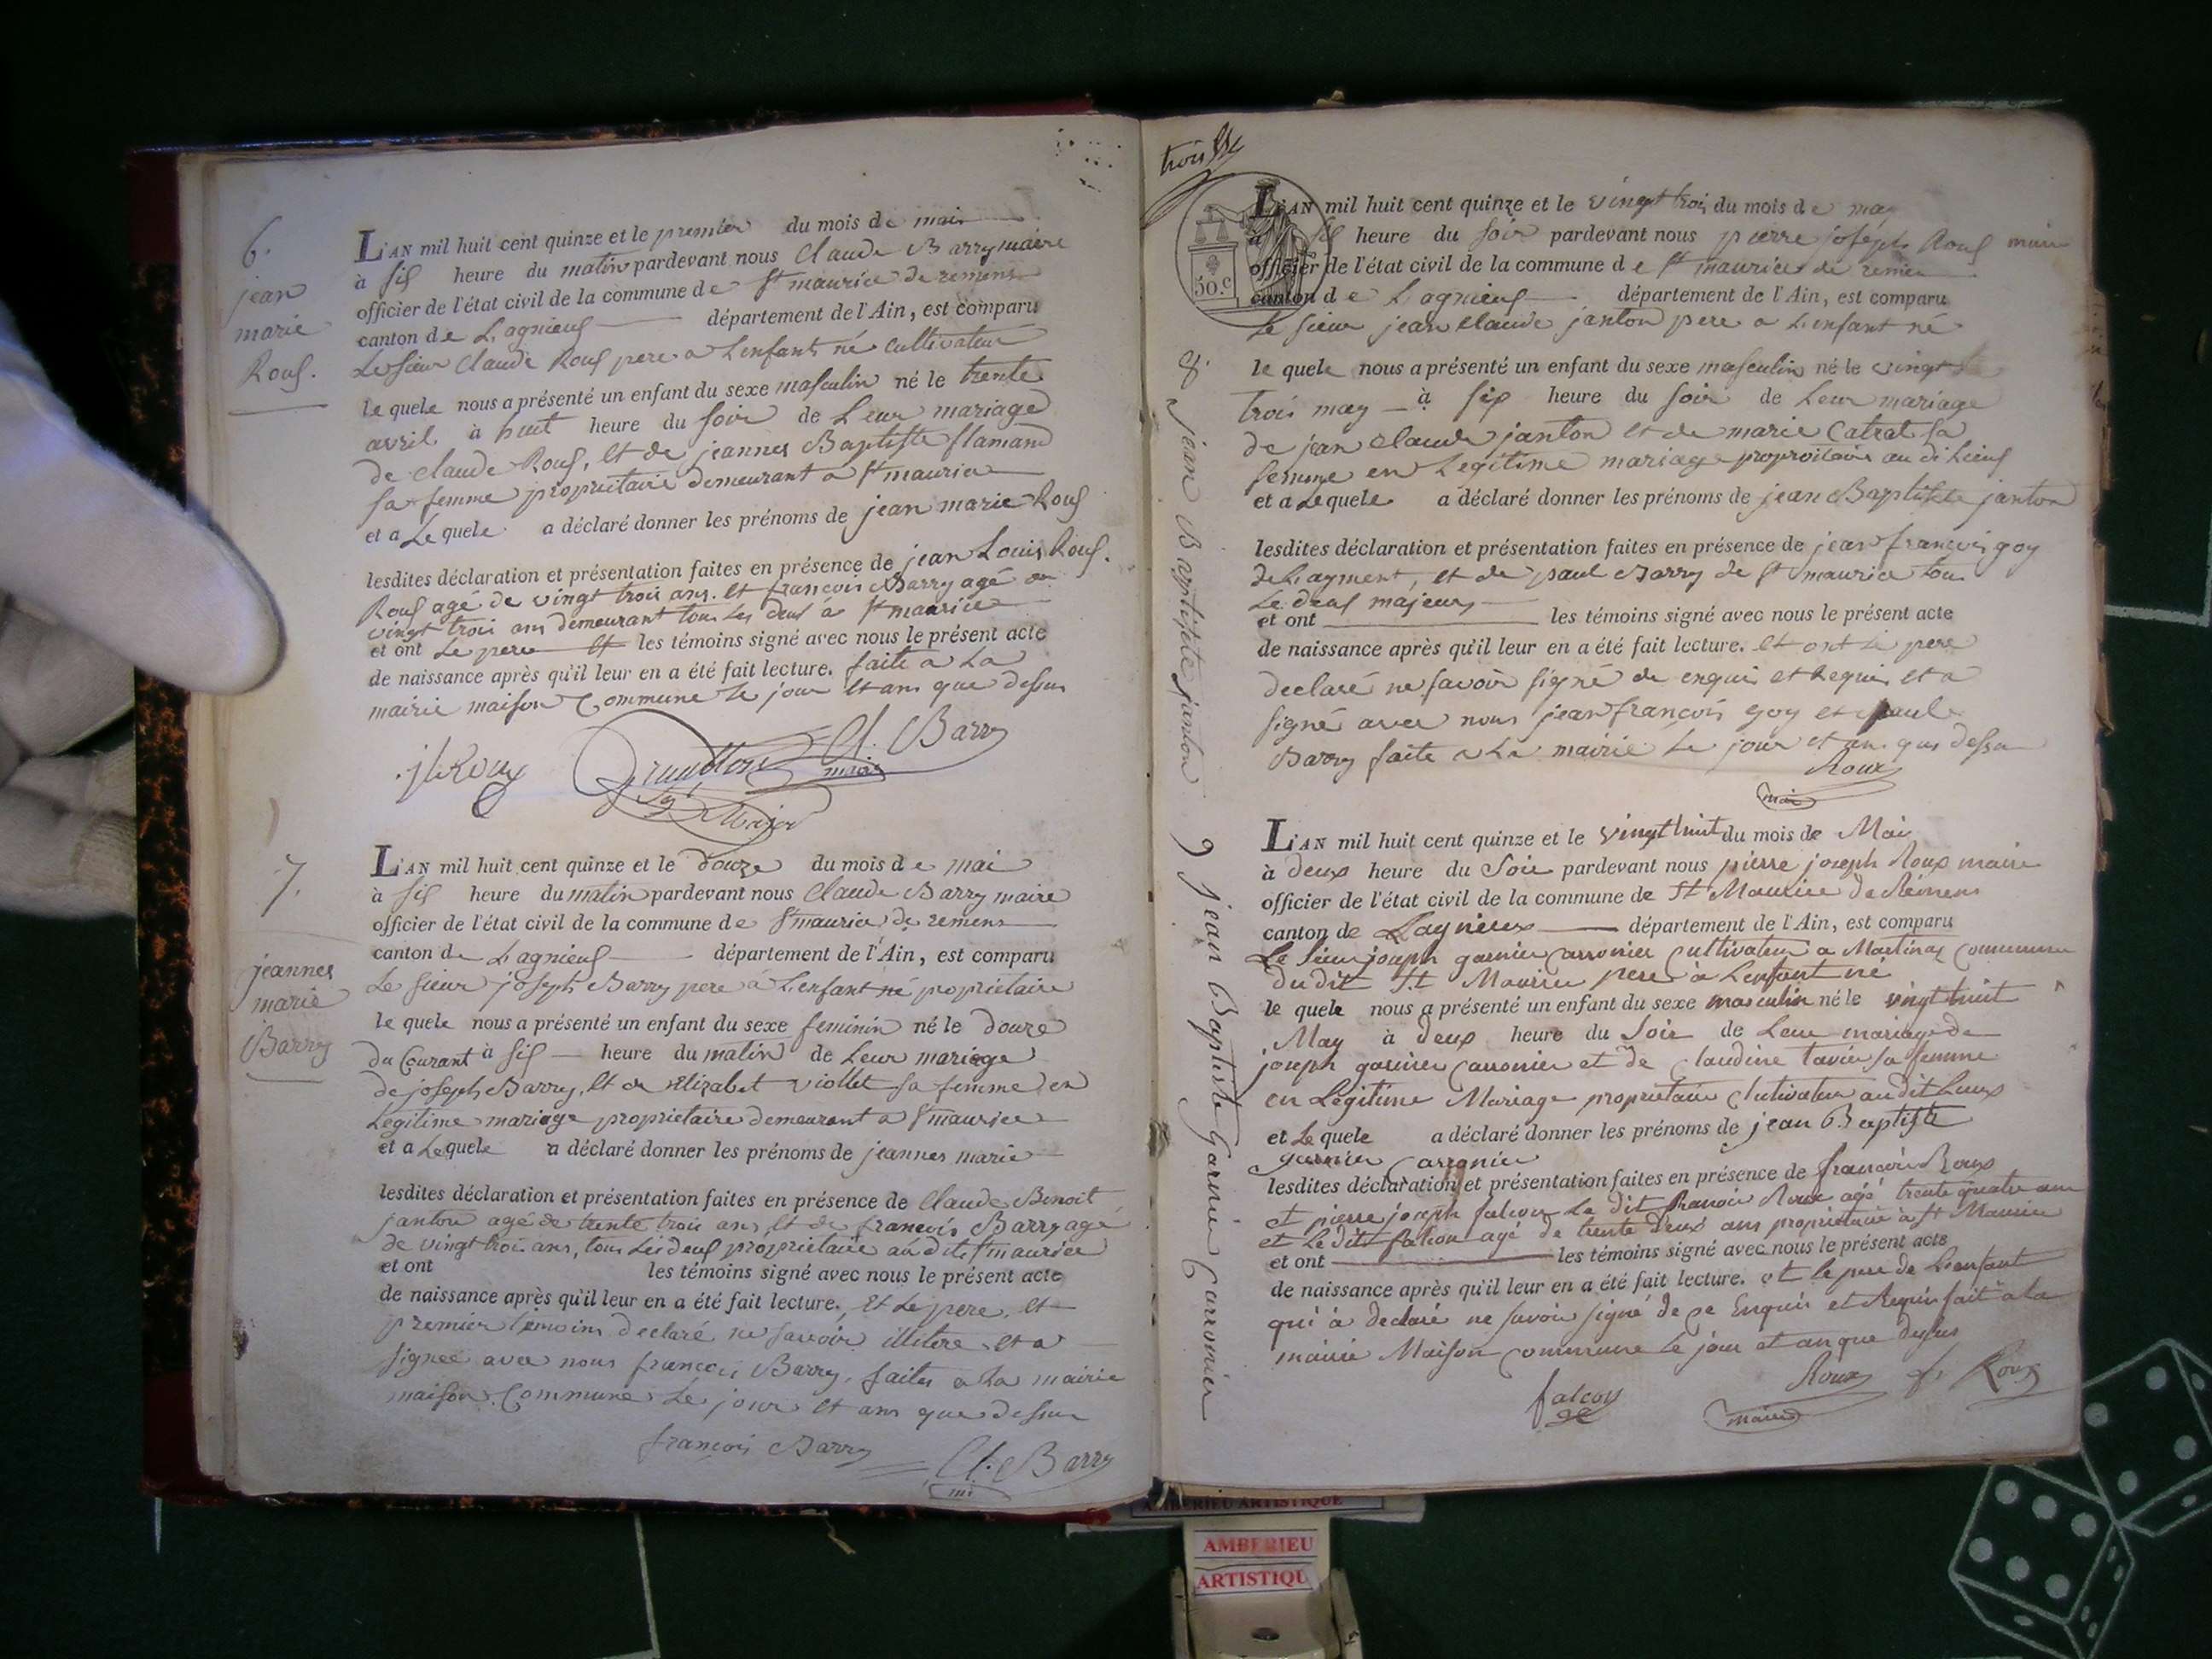 6.
jean
marie
Rouf.
L'AN mil huit cent quinze et le premier du mois de mai
à sis heure du matin pardevant nous Claude Barry maire
officier de l'état civil de la commune de st maurice de remens
canton de Lagnieus département de l'Ain, est comparu
Le sieur Claude Rouf pere a Lenfant né cultivateur
le quele nous a présenté un enfant du sexe masculin né le trente
avril à huit heure du soir de Leur mariage
de claude Rouf, et de jeannes Baptiste flamand
sa femme propriétaire demeurant a st maurice
et a Lequele a déclaré donner les prénoms de jean marie Rouf
lesdites déclaration et présentation faites en présence de jean Louis Rouf.
Rouf agé de vingt trois ans. et francois Barry agé de
vingt trois ans demeurant tous Les deus à st maurice
et ont Le pere et les témoins signé avec nous le présent acte
de naissance après qu'il leur en a été fait lecture. faite a La
mairie maison Commune le jour et ans que dessus
jlRoux Cl. Barry
maire
7.
jeannes
marie
Barry
L'AN mil huit cent quinze et le douze du mois de mai
à sis heure du matin pardevant nous Claude Barry maire
officier de l'état civil de la commune de st maurice de remens
canton de Lagnieus département de l'Ain, est comparu
Le sieur joseph Barry pere a L'enfant né propriétaire
le quele nous a présenté un enfant du sexe feminin né le douze
du Courant à sis heure du matin de Leur mariage
de joseph Barry, et de Elizabet viollet sa femme en
Legitime mariage propriétaire demeurant a st maurice
et a Lequele a déclaré donner les prénoms de jeannes marie
lesdites déclaration et présentation faites en présence de Claude Benoit
janton agé de trente trois ans, et de francois Barry agé
de vingt trois ans, tous Les deus propriétaire au dit st maurice
et ont les témoins signé avec nous le présent acte
de naissance après qu'il leur en a été fait lecture. Et Le pere, et
premier témoins declaré ne savoir et a
signeé avec nous francois Barry, faites a La mairie
maison Commune Le jour et ans que dessus
françois Barry Cl. Barry
trois
50.c
8. jean Baptiste janton
L'AN mil huit cent quinze et le vingt trois du mois de may
à sis heure du soir pardevant nous pierre joseph Rouf maire
officier de l'état civil de la commune de st maurice de remens
canton de Lagnieus département de l'Ain, est comparu
Le sieur jean Claude janton pere a Lenfant né
le quele nous a présenté un enfant du sexe masculin né le vingt
trois may à six heure du soir de Leur mariage
de jean claude janton et de marie Catrat sa
femme en Legitime mariage au di Lieus
et a Lequele a déclaré donner les prénoms de jean Baptiste janton
lesdites déclaration et présentation faites en présence de jean francois goy
de Layment, et de paul Barry de st maurice tous
Le deus majeurs
et ont les témoins signé avec nous le présent acte
de naissance après qu'il leur en a été fait lecture. et ont Le pere
declaré ne savoir signé de enquis et Requis et a
signé avec nous jean françois goy et paul
Barry faite a La mairie Le jour et an que dessu
Roux
maire
9 jean Baptiste Garnier Carronier
L'AN mil huit cent quinze et le vingt huit du mois de Mai
à deux heure du Soir pardevant nous pierre joseph Roux maire
officier de l'état civil de la commune de St Maurice de Rémens
canton de Lagnieux département de l'Ain, est comparu
Le sieur joseph garnier carronier Cultivateur a Martinaz Commune
dudit St Maurice pere à Lenfant né
le quele nous a présenté un enfant du sexe masculin né le vingt huit
May à deux heure du Soir de Leur mariage de
joseph garnier carronier et de Claudine tavier sa femme
en Légitime Mariage propriétaire Cultivateur audit Lieux
et Le quele a déclaré donner les prénoms de jean Baptiste
garnier Carronier
lesdites déclaration et présentation faites en présence de françois Roux
et pierre joseph falcon Le dit franois Roux agé trente quatre ans
et Le dit falcon agé de trente deux ans propriétaire à St Maurice
et ont les témoins signé avec nous le présent acte
de naissance après qu'il leur en a été fait lecture. et le pere de Lenfant
qui à declaré ne savoir signé de ce Enquis et Requis fait à la
mairie Maison commune Le jour et an que dessus
falcon Roux f. Roux
maire
AMBERIEU ARTISTIQUE
AMBERIEU
ARTISTIQU